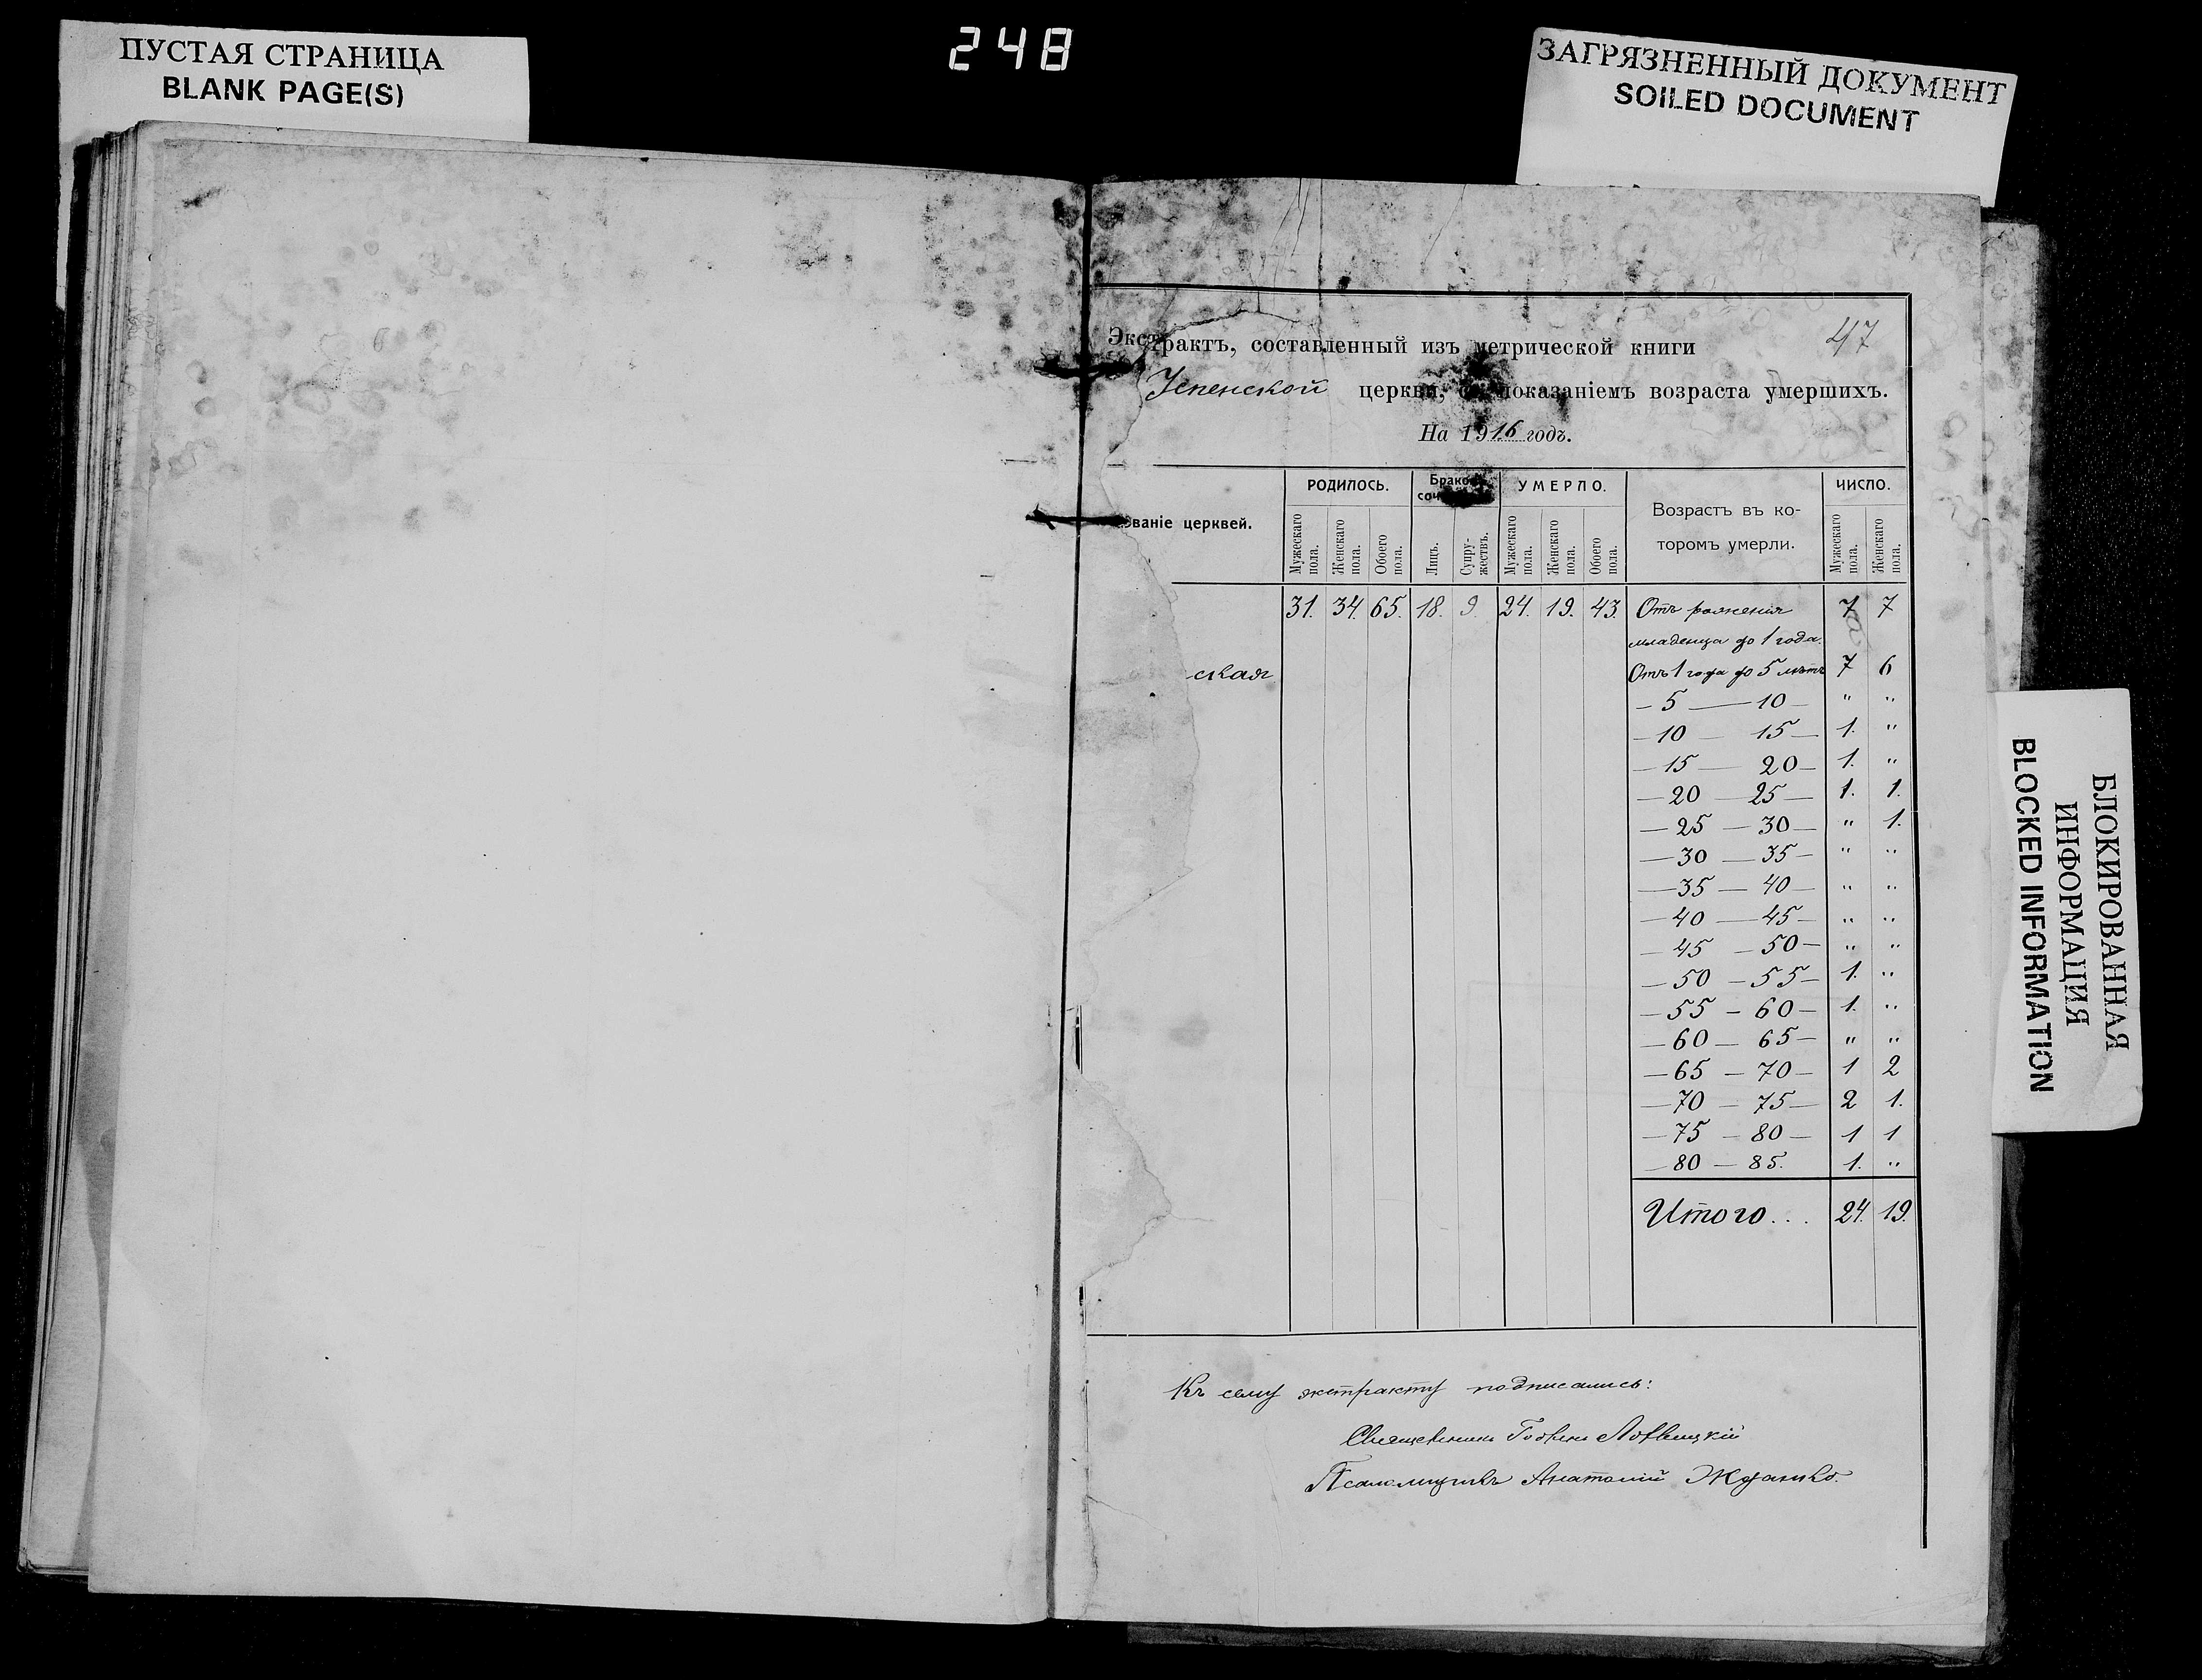 ПУСТАЯ СТРАНИЦА
BLANK PAGE(S)
248
ЗАГРЯЗНЕННЫЙ ДОКУМЕНТ
SOILED DOCUMENT
47
Экстрактъ, составленный изъ метрической книги
Успенской церкви, съ показаніемъ возраста умершихъ.
На 1916 годъ.
ованіе церквей.
РОДИЛОСЬ.
Мужескаго пола.
Женскаго пола.
Обоего пола.
Брако
соч
Лицъ.
Супружествъ.
УМЕРЛО.
Мужескаго пола.
Женскаго пола.
Обоего пола.
Возрастъ въ ко-
торомъ умерли.
ЧИСЛО.
Мужескаго пола.
Женскаго пола.
31. 34. 65. 18. 9. 24. 19. 43. Отъ рожденія 7 7
младенца до 1 года.
ская Отъ 1 года до 5 лѣтъ 7 6
— 5 — 10 — " "
— 10 — 15 — 1. "
— 15 — 20 — 1. "
— 20 — 25 — 1. 1.
— 25 — 30 — " 1.
— 30 — 35 — " "
— 35 — 40 — " "
— 40 — 45 — " "
— 45 — 50 — " "
— 50 — 55 — 1. "
— 55 — 60 — 1. "
— 60 — 65 — " "
— 65 — 70 — 1 2
— 70 — 75 — 2 1.
— 75 — 80 — 1 1
— 80 — 85. 1. "
Итого... 24. 19.
Къ сему экстракту подписались:
Священникъ
Псаломщикъ Анатолій Жданко.
БЛОКИРОВАННАЯ
ИНФОРМАЦИЯ
BLOCKED INFORMATION